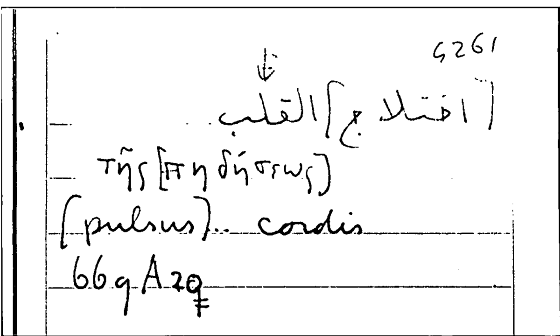 G261
[اختلاج] القلب
τῆς [πηδήσεως]
[pulsus].. cordis
66 q A 29